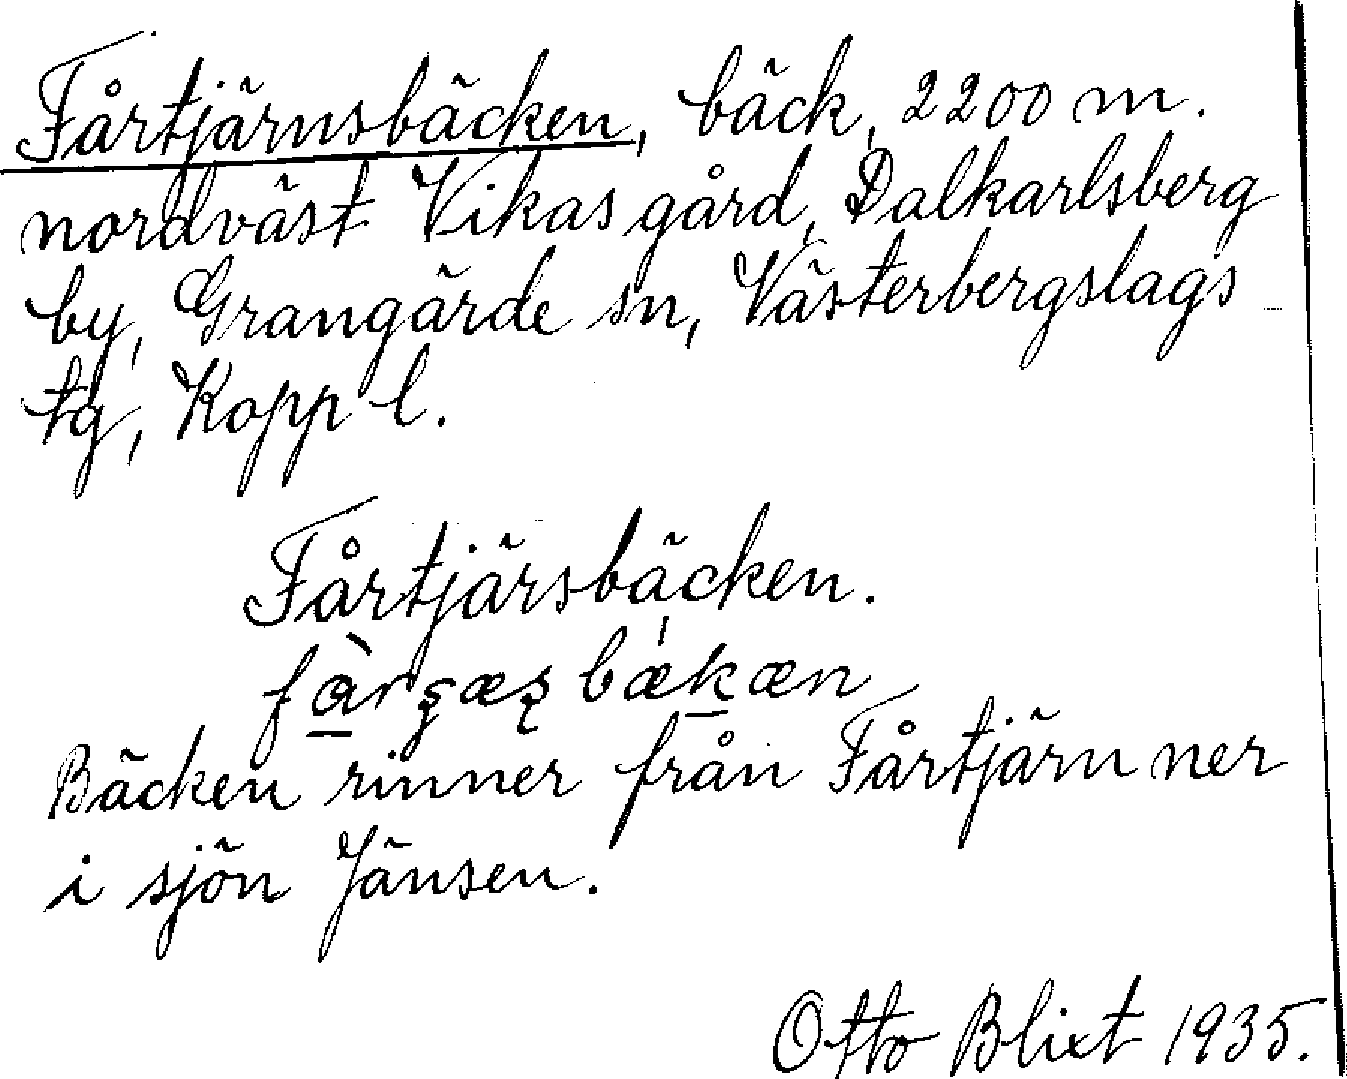 Fårtjärnsbäcken, bäck, 2200 m.
nordväst Vikasgård, Dalkarlsberg
by, Grangärde sn, Västerbergslags
tg, Kopp l.
Fårtjärsbäcken.
Bäcken rinner från Fårtjärn ner
i sjön Jänsen.
Otto Blixt 1935.